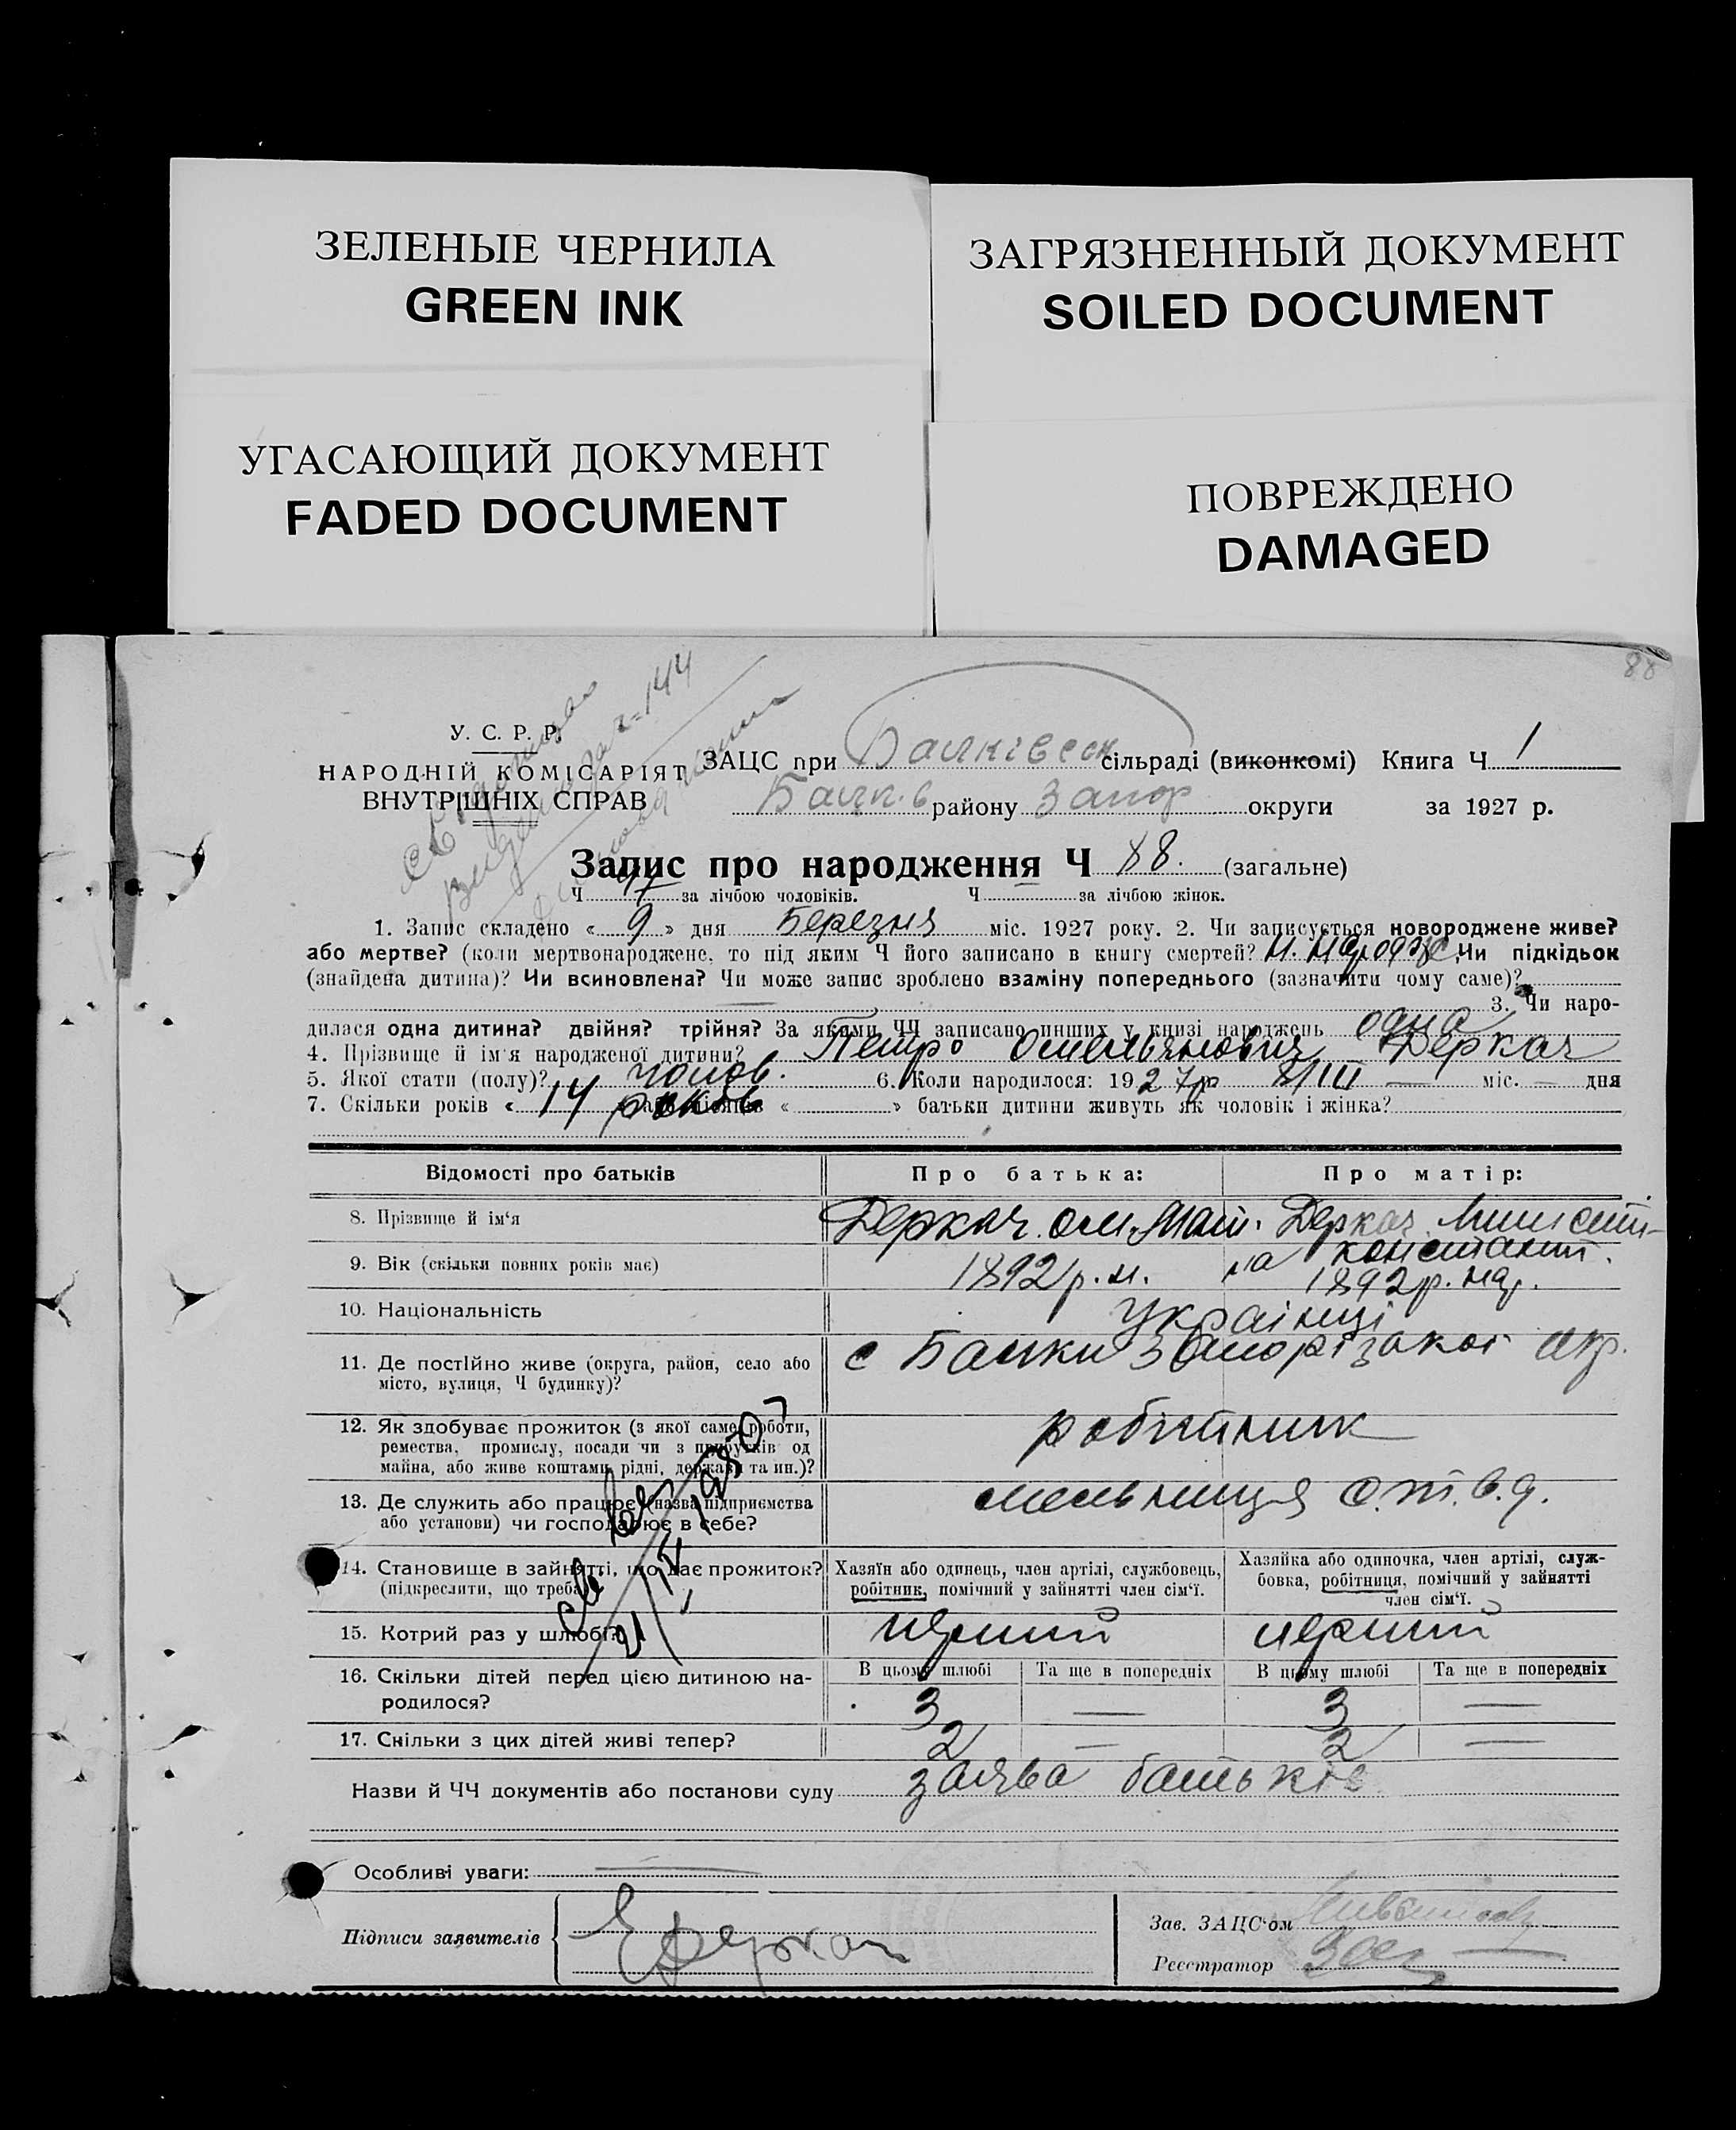 ЗЕЛЕНЫЕ ЧЕРНИЛА
GREEN INK
ЗАГРЯЗНЕННЫЙ ДОКУМЕНТ
SOILED DOCUMENT
УГАСАЮЩИЙ ДОКУМЕНТ
FADED DOCUMENT
ПОВРЕЖДЕНО
DAMAGED
88
У. С. Р. Р.
НАРОДНІЙ КОМІСАРІЯТ
ВНУТРІШНІХ СПРАВ
ЗАЦС при Балківськ сільраді (виконкомі) Книга Ч 1
району Запор округи за 1927 р.
Запис про народження Ч 88. (загальне)
Ч 47 за лічбою чоловіків. Ч — за лічбою жінок.
1. Запис складено « 9 » дня Березня міс. 1927 року. 2. Чи записується новороджене живе?
або мертве? (коли мертвонароджене, то під яким Ч його записано в книгу смертей? Чи підкідьок
(знайдена дитина)? Чи всиновлена? Чи може запис зроблено взаміну попереднього (зазначити чому саме)?
3. Чи наро-
дилася одна дитина? двійня? трійня? За якими ЧЧ записано инших у книзі народжень одна
4. Прізвище й ім'я народженої дитини? Петро Омельянович Деркач
5. Якої стати (полу)? чолов. 6. Коли народилося: 1927р 8/III — міс. — дня
7. Скільки років « 14 років « » батьки дитини живуть як чоловік і жінка?
Відомості про батьків Про батька: Про матір:
8. Прізвище й ім'я Деркач Ом. Мат. Деркач
Констант.
9. Вік (скільки повних років має) 1892 р. н. 1892 р. нар.
10. Національність Українці
11. Де постійно живе (округа, район, село або
місто, вулиця, Ч будинку)? с Балки Запорізької окр.
12. Як здобуває прожиток (з якої саме роботи,
ремества, промислу, посади чи з прибутків од
майна, або живе коштами рідні, держави та ин.)? робітник
13. Де служить або працює (назва підприємства
або установи) чи господарює в себе? мельниця
14. Становище в зайнятті, що дає прожиток?
(підкреслити, що треба)
Хазяїн або одинець, член артілі, службовець,
робітник, помічний у зайнятті член сім'ї.
Хазяйка або одиночка, член артілі, служ-
бовка, робітниця, помічний у зайнятті
член сім'ї.
15. Котрий раз у шлюбі? перший перший
16. Скільки дітей перед цією дитиною на-
родилося?
В цьому шлюбі Та ще в попередніх В цьому шлюбі Та ще в попередніх
3 — 3 —
17. Скільки з цих дітей живі тепер? 2 — 2 —
Назви й ЧЧ документів або постанови суду заява батьків
Особливі уваги: —
Підписи заявителів Деркач
Зав. ЗАЦС'ом
Реєстратор